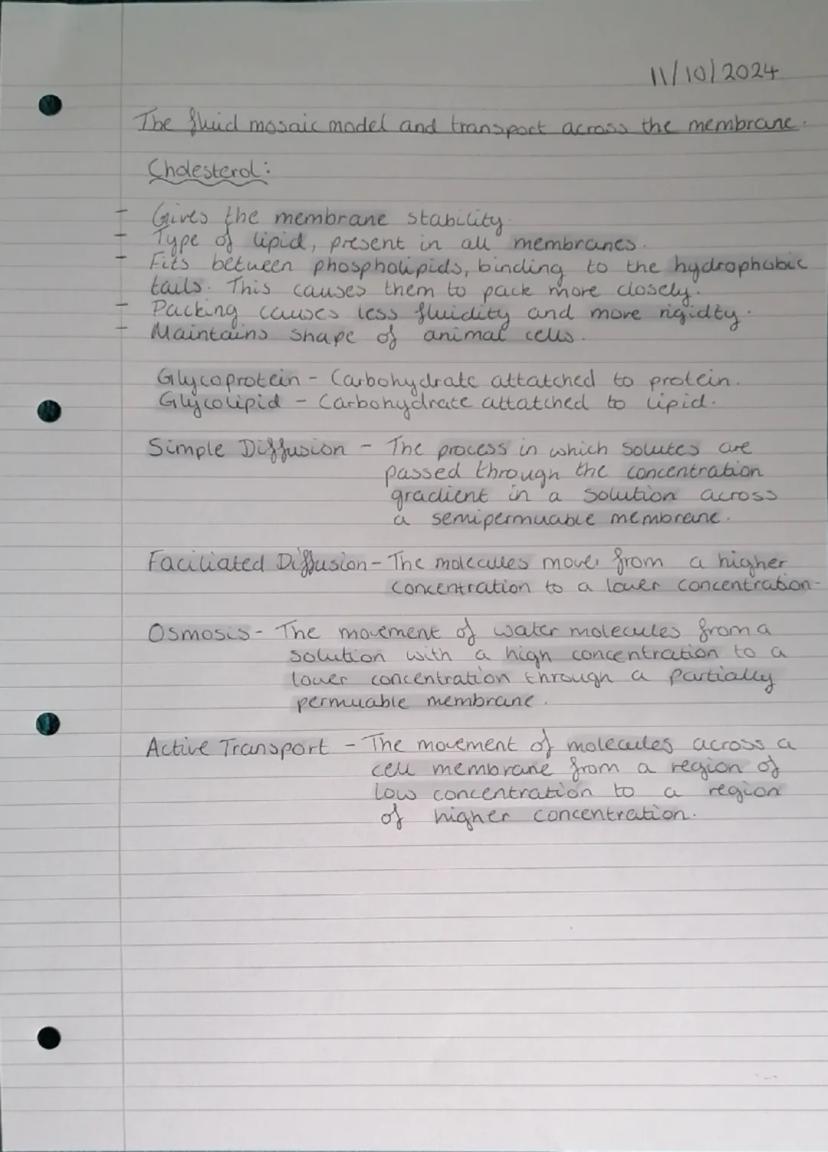 11/10/2024
The fluid mosaic model and transport across the membrane.
Cholesterol:
- Gives the membrane stability.
- Type of lipid, present in all membranes.
- Fits between phospholipids, binding to the hydrophobic
tails. This causes them to pack more closely.
- Packing causes less fluidity and more rigidty.
- Maintains shape of animal cells.
Glycoprotein - Carbohydrate attatched to protein.
Glycolipid - Carbohydrate attatched to lipid.
Simple Diffusion - The process in which solutes are
passed through the concentration
gradient in a solution across
a semipermuable membrane.
Faciliated Diffusion - The molecules move from a higher
concentration to a lower concentration-
Osmosis - The movement of water molecules from a
solution with a high concentration to a
lower concentration through a partially
permuable membrane.
Active Transport - The movement of molecules across a
cell membrane from a region of
low concentration to a region
of higher concentration.